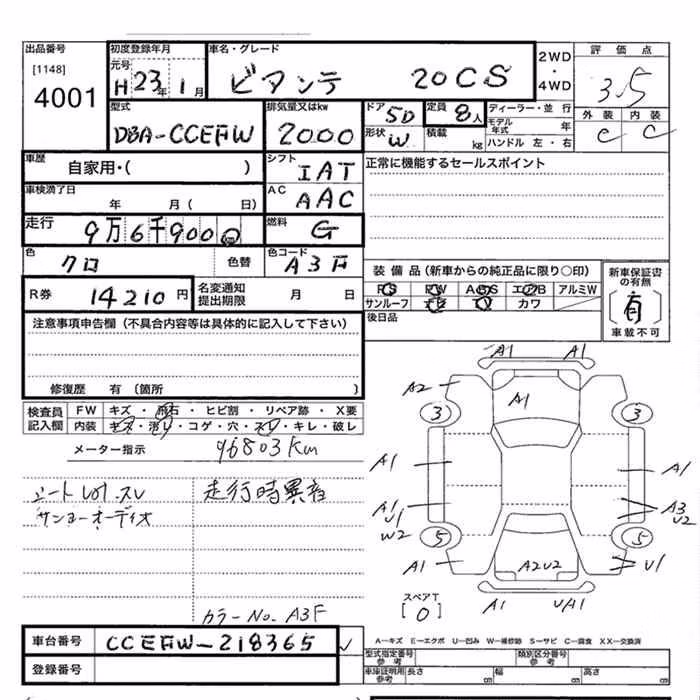 出品番号
[1148]
4001
初度登録年月
元号
H 23年 1月
車名・グレード
ビアンテ 20CS
2WD
・
4WD
評価点
3.5
外装 内装
C C
型式
DBA-CCEFW
排気量又はkw
2000
ドア 5D
形状 W
定員 8人
積載 kg
ディーラー・並行
モデル年式 年
ハンドル 左・右
車歴
自家用・( )
シフト
IAT
正常に機能するセールスポイント
車検満了日
年 月( 日)
AC
AAC
走行
9万6千900
燃料
G
色
クロ 色替
色コード
A3F
装備品(新車からの純正品に限り○印)
PS PW ABS エアB アルミW
サンルーフ ナビ TV カワ
新車保証書の有無
(有)
車載不可
R券 14210円
名変通知
提出期限 月 日
後日品
注意事項申告欄(不具合内容等は具体的に記入して下さい)
修復歴 有(箇所 )
検査員
記入欄
FW キズ・飛石・ヒビ割・リペア跡・X要
内装 キズ・汚レ・コゲ・穴・スレ・キレ・破レ
メーター指示 96803km
シートレザースレ
サンヨーオーディオ
走行時異音
カラーNo. A3F
A1 A1
A2 A1
3 3
A1 A1
A1 A3
U1 U2
W2
5 5
A1 A2U2 U1
スペアT
[0]
A1 UA1
車台番号 CCEFW-218365
登録番号
A-キズ E-エクボ U-凹み W-補修跡 S-サビ C-腐食 XX-交換済
型式指定番号
参考
類別区分番号
参考
車庫証明用
参考
長さ cm 幅 cm 高さ cm